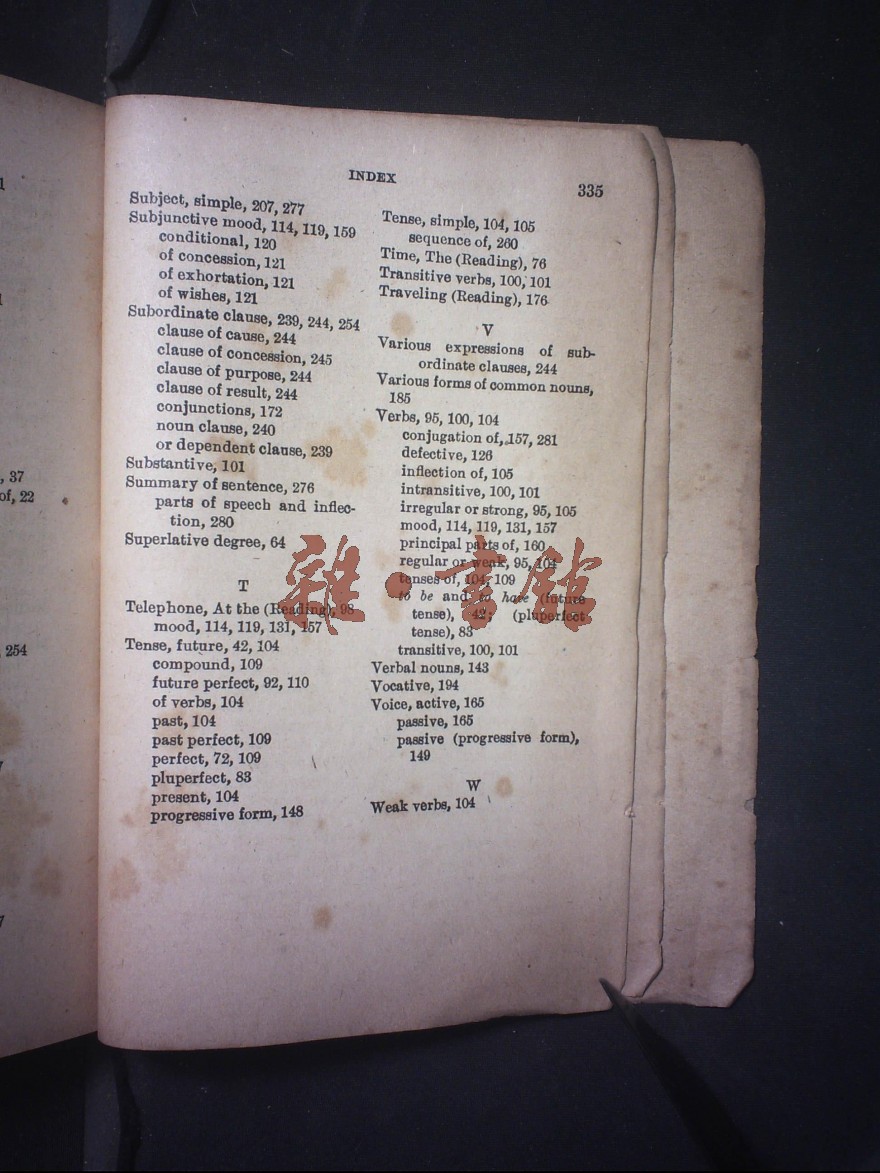 INDEX
335
Subject, simple, 207, 277
Subjunctive mood, 114, 119, 159
conditional, 120
of concession, 121
of exhortation, 121
of wishes, 121
Subordinate clause, 239, 244, 254
clause of cause, 244
clause of concession, 245
clause of purpose, 244
clause of result, 244
conjunctions, 172
noun clause, 240
or dependent clause, 239
Substantive, 101
Summary of sentence, 276
parts of speech and inflec-
tion, 280
Superlative degree, 64
T
Telephone, At the (Reading), 98
mood, 114, 119, 131, 157
Tense, future, 42, 104
compound, 109
future perfect, 92, 110
of verbs, 104
past, 104
past perfect, 109
perfect, 72, 109
pluperfect, 83
present, 104
progressive form, 148
Tense, simple, 104, 105
sequence of, 260
Time, The (Reading), 76
Transitive verbs, 100, 101
Traveling (Reading), 176
V
Various expressions of sub-
ordinate clauses, 244
Various forms of common nouns,
185
Verbs, 95, 100, 104
conjugation of, 157, 281
defective, 126
inflection of, 105
intransitive, 100, 101
irregular or strong, 95, 105
mood, 114, 119, 131, 157
principal parts of, 160
regular or weak, 95, 104
tenses of, 104, 109
to be and to have (future
tense), 42; (pluperfect
tense), 83
transitive, 100, 101
Verbal nouns, 143
Vocative, 194
Voice, active, 165
passive, 165
passive (progressive form),
149
W
Weak verbs, 104
, 37
of, 22
254
雜·書館